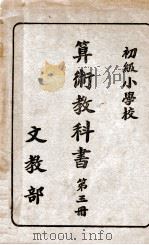 初級小學校
算術教科書 第三冊
文教部